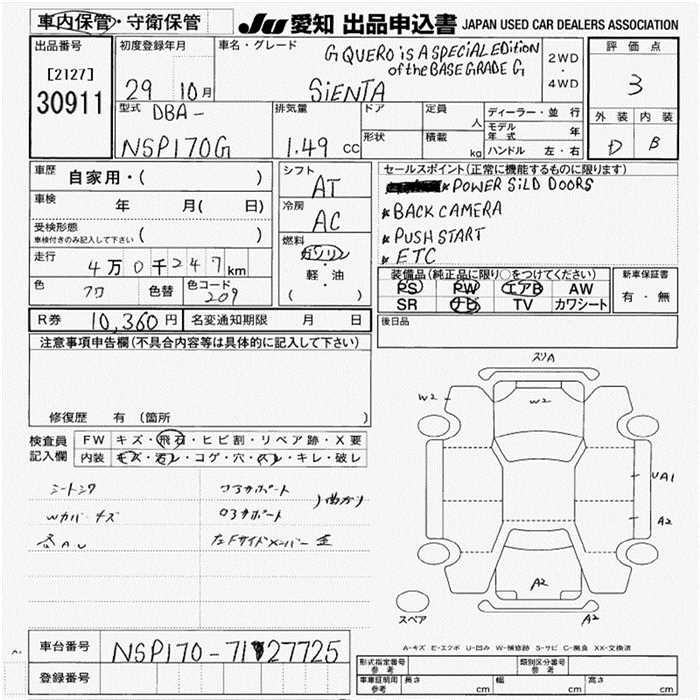 車内保管・守衛保管
JU 愛知 出品申込書 JAPAN USED CAR DEALERS ASSOCIATION
出品番号 [2127] 30911
初度登録年月 29 10月
車名・グレード G QUERO is A SPECIAL EDition
of the BASE GRADE G
SiENTA
2WD・4WD
評価点 3
外装 内装
D B
型式 DBA-
NSP170G
排気量 1.49 cc
ドア
形状
定員 人
積載 kg
ディーラー・並行
モデル年式 年
ハンドル 左・右
車歴 自家用・( )
車検 年 月( 日)
受検形態
車検付きのみ記入して下さい ( )
走行 4万0千247km
色 クロ 色替 色コード 209
シフト AT
冷房 AC
燃料 ガソリン・軽・油
( )
セールスポイント(正常に機能するものに限ります)
* POWER SiLD DOORS
* BACK CAMERA
* PUSH START
* ETC
装備品(純正品に限り○をつけてください)
PS PW エアB AW
SR ナビ TV カワシート
新車保証書
有・無
R券 10,360円 名変通知期限 月 日
後日品
注意事項申告欄(不具合内容等は具体的に記入して下さい)
修復歴 有 (箇所 )
検査員記入欄
FW キズ・飛石・ヒビ割・リペア跡・X要
内装 キズ・汚レ・コゲ・穴・スレ・キレ・破レ
シートシワ
Wカバーキズ
コアサポート
ロアサポート
)曲がり
左Fサイドメンバー
スリA
W2
W2
UA1
A2
A2
A2
スペア
A-キズ E-エクボ U-凹み W-補修跡 S-サビ C-腐食 XX-交換済
車台番号 NSP170-7127725
登録番号
形式指定番号 参考
類別区分番号 参考
車庫証明用 参考 長さ cm 幅 cm 高さ cm